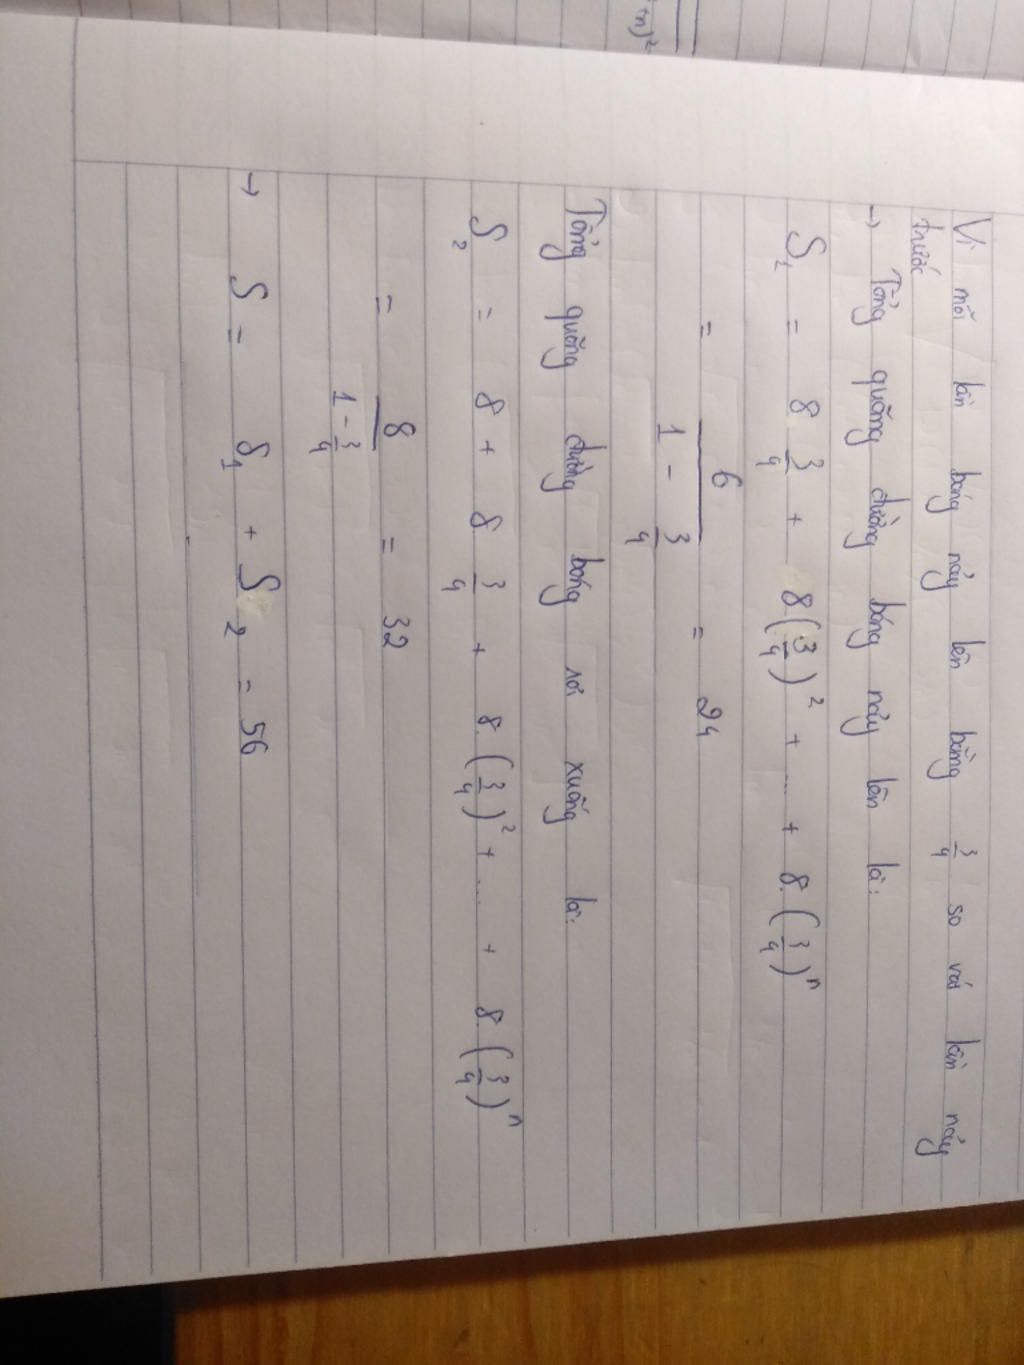 +n)²
Vì mỗi lần bóng nảy lên bằng 3/4 so với lần nảy
trước
→ Tổng quãng đường bóng nảy lên là:
S₁ = 8 3/4 + 8(3/4)² + ... + 8.(3/4)ⁿ
= 6/(1 - 3/4) = 24
Tổng quãng đường bóng rơi xuống là:
S₂ = 8 + 8 3/4 + 8.(3/4)² + ... + 8.(3/4)ⁿ
= 8/(1 - 3/4) = 32
→ S = S₁ + S₂ = 56